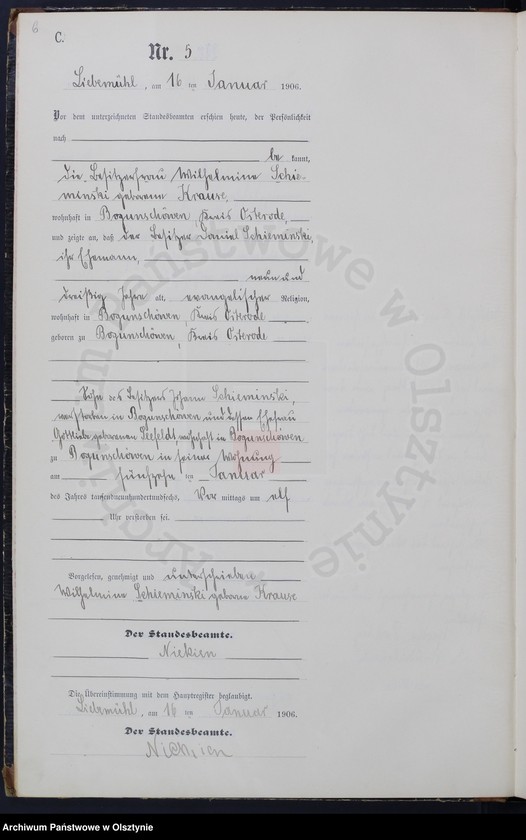 6
C.
Nr. 5
Liebemühl, am 16 ten Januar 1906.
Vor dem unterzeichneten Standesbeamten erschien heute, der Persönlichkeit
nach
be kannt,
die Besitzerfrau Wilhelmine Schie-
minski geborene Krause,
wohnhaft in Bogunschöwen, Kreis Osterode,
und zeigte an, daß der Besitzer Daniel Schieminski,
ihr Ehemann,
neun und
dreißig Jahre alt, evangelischer Religion,
wohnhaft in Bogunschöwen, Kreis Osterode
geboren zu Bogunschöwen, Kreis Osterode
Sohn des Besitzers Johann Schieminski,
verstorben in Bogunschöwen und dessen Ehefrau
Gottliebe geborenen Seefeldt wohnhaft in Bogunschöwen
zu Bogunschöwen in seiner Wohnung
am fünfzehn ten Januar
des Jahres tausendneunhundertundsechs, Vor mittags um elf
Uhr verstorben sei.
Vorgelesen, genehmigt und unterschrieben
Wilhelmine Schieminski geborne Krause
Der Standesbeamte.
Nickien
Die Übereinstimmung mit dem Hauptregister beglaubigt.
Liebemühl, am 16 ten Januar 1906.
Der Standesbeamte.
Nickien
Archiwum Państwowe w Olsztynie
Archiwum Państwowe w Olsztynie